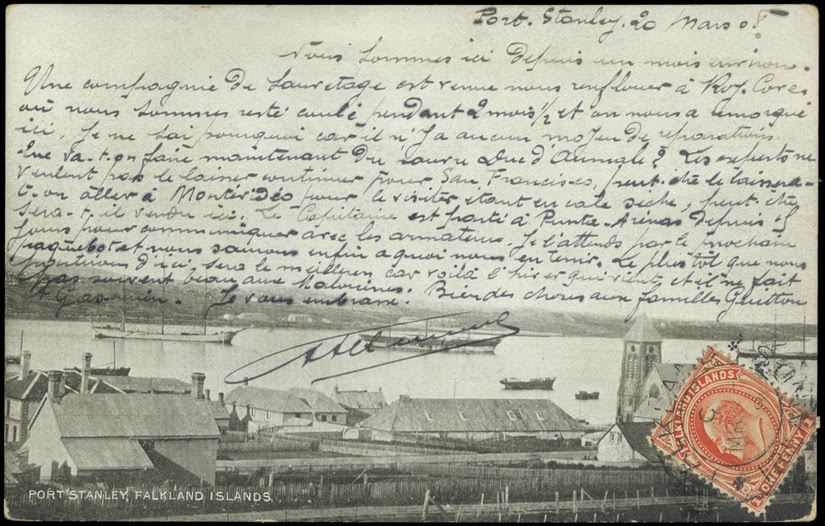 Port-Stanley. 20 Mars 08
Nous sommes ici depuis un mois environ.
Une compagnie de sauvetage est venue nous renflouer à Roy. Coves
où nous sommes resté coulé pendant 2 mois 1/2 et on nous a remorqué
ici. Je ne sai pourquoi car il n'y a aucun moyen de réparations
Que va-t-on faire maintenant du pauvre Duc d'Aumale? Les experts ne
veulent pas le laisser continuer pour San Francisco, peut-etre le laissera-
t-on aller à Montevideo pour le visiter étant en cale sèche, peut-etre
sera-t-il vendu ici. Le Capitaine est parti à Punta-Arenas depuis
jours pour communiquer avec les armateurs. Je l'attends par le prochain
paquebot et nous saurons enfin a quoi nous en tenir. Le plus tôt que nous
partirons d'ici sera le meilleur car voilà l'hiver qui vient et il ne fait
pas souvent beau aux Malouines. Bien des choses aux familles
et Je vous embrasse.
FALKLAND ISLANDS
ONE PENNY
PORT STANLEY, FALKLAND ISLANDS.